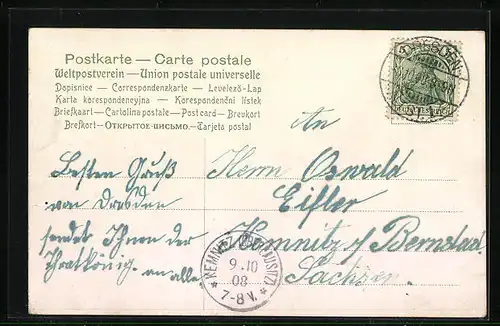 Postkarte — Carte postale
Weltpostverein — Union postale universelle
Dopisnice — Correspondenzkarte — Levelező-Lap
Karta korespondencyjna — Korespondenční lístek
Briefkaart — Cartolina postale — Postcard — Brevkort
Brefkort — Открытое письмо. — Tarjeta postal
DRESDEN
An
Herrn Oswald
Eifler
Kemnitz b/ Bernstadt
Sachsen.
Besten Gruß
von Dresden
sendet Ihnen der
an alle
KEMNITZ
9.10
08
7-8 V.